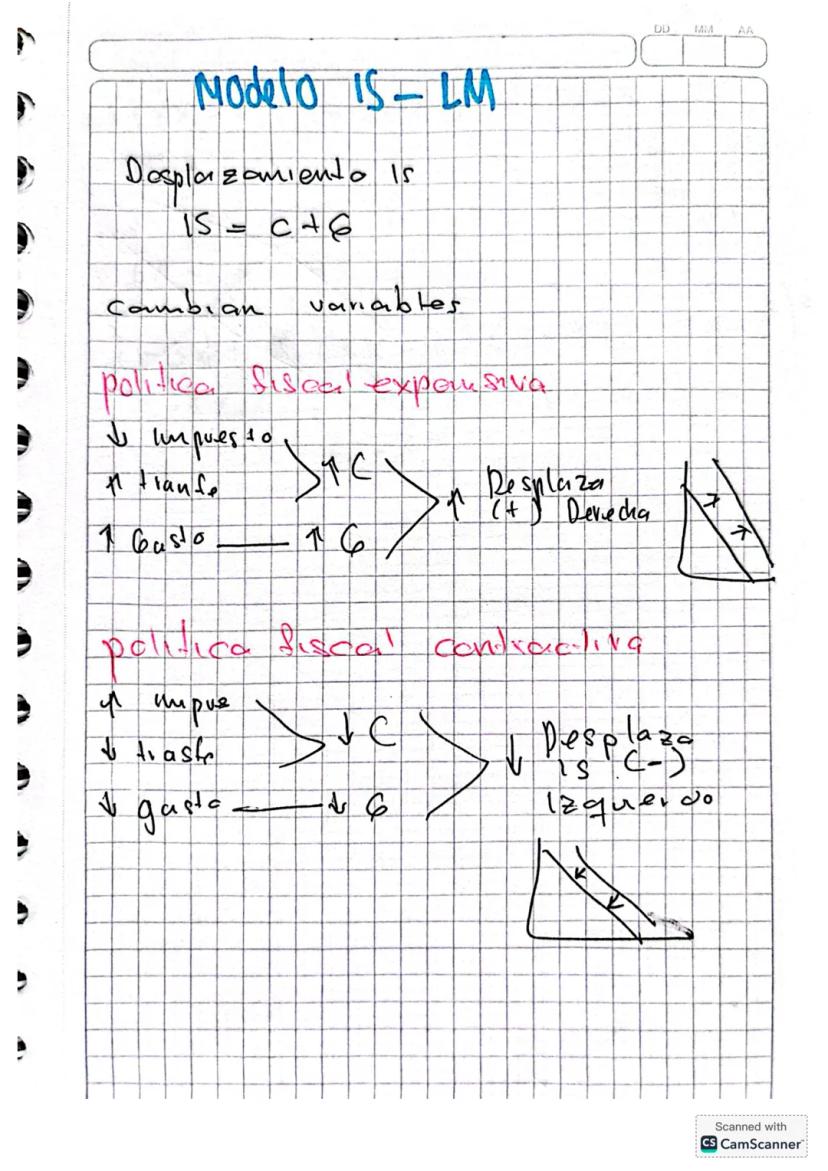 DD MM AA
Modelo IS - LM
Desplazamiento IS
IS = C + G
cambian variables
politica fiscal expansiva
↓ impuesto
↑ tranfe
↑ C
↑ Desplaza
(+) Derecha
↑ Gasto — ↑ G
politica fiscal contractiva
↑ impue
↓ trasfr
↓ C
↓ Desplaza
IS (-)
Izquerdo
↓ gasto — ↓ G
Scanned with
CS CamScanner